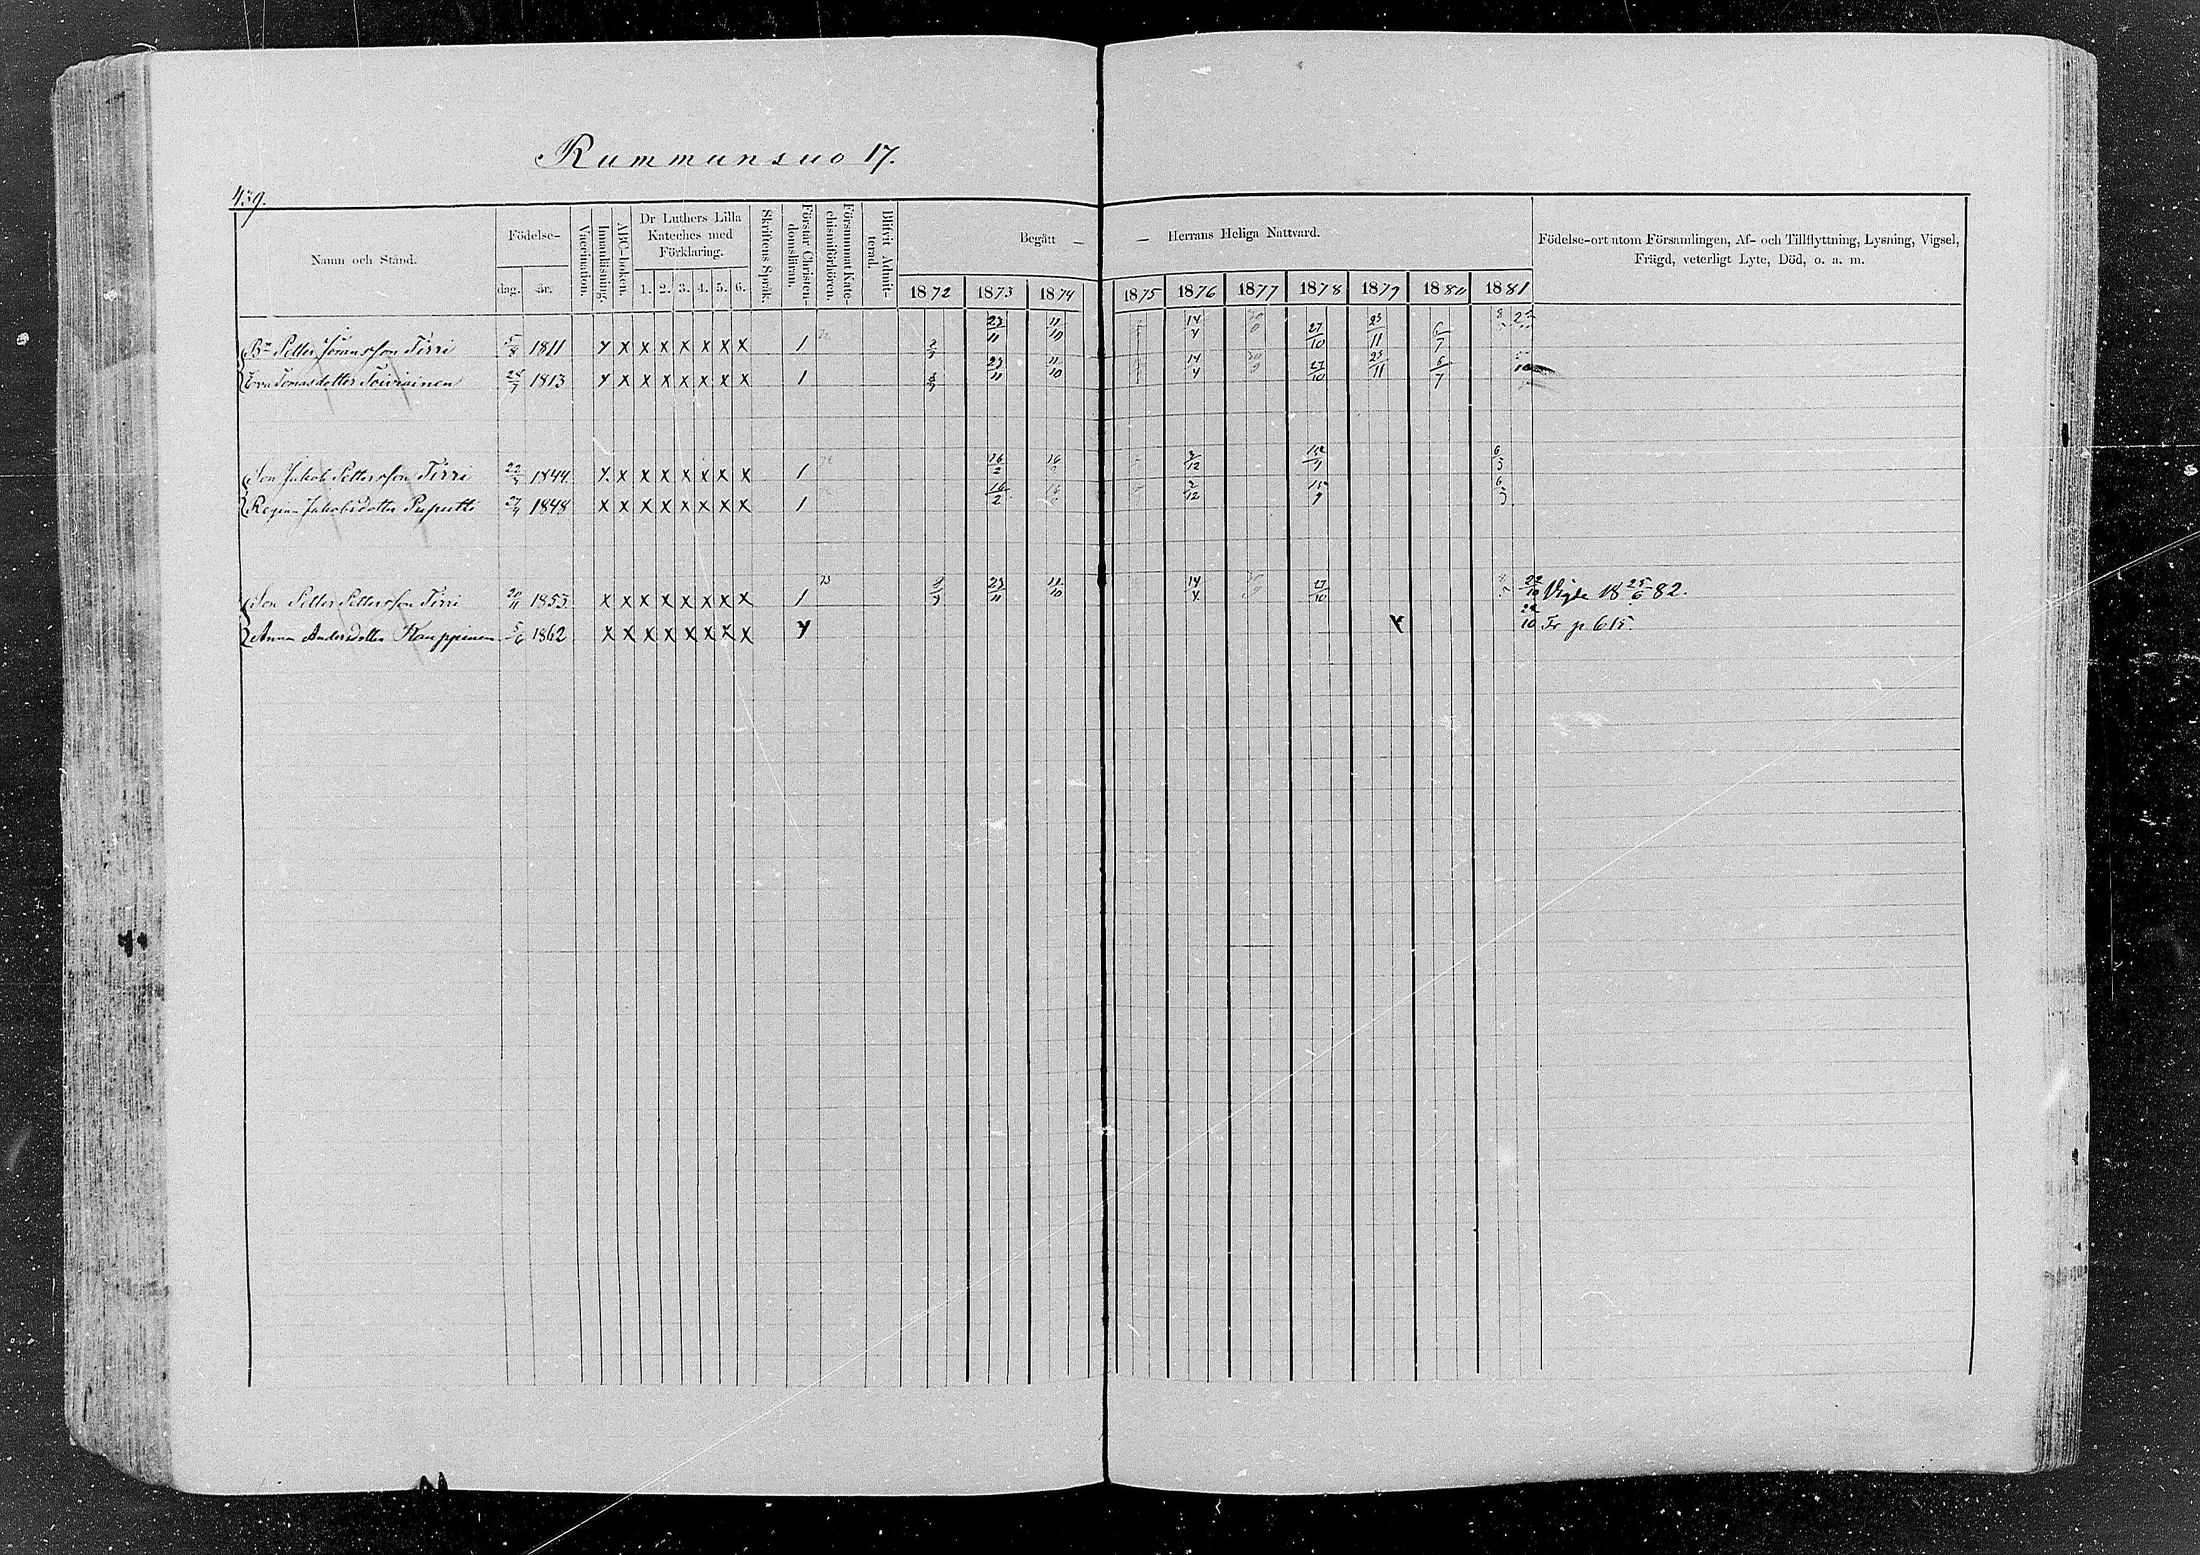 Rummunsuo 17.
439.
Namn och Stånd.
Födelse-
dag.
år.
Vaccination.
Innanläsning.
ABC-boken.
Dr Luthers Lilla
Kateches med
Förklaring.
1. 2. 3. 4. 5. 6.
Skriftens Språk.
Förstår Christen-
domsläran.
Försummat Kate-
chismiförhören.
Blifvit Admit-
terad.
Begått — — Herrans Heliga Nattvard.
1872 1873 1874 1875 1876 1877 1878 1879 1880 1881
Födelse-ort utom Församlingen, Af- och Tillflyttning, Lysning, Vigsel,
Frägd, veterligt Lyte, Död, o. a. m.
Bn Petter Göransson Tirri 5/8 1811 x x x x x x x x 1 23/11 11/10 14/4 27/10 25/11 6/7
Eva Tomasdotter Toiviainen 28/7 1813 x x x x x x x x 1 23/11 11/10 14/4 27/10 25/11 6/7
Son Jakob Pettersson Tirri 22/5 1844 x x x x x x x x 1 16/2 2/12 6/3
Regina Jakobsdotter Puputti 27/4 1848 x x x x x x x x 1 16/2 2/12 6/3
Son Petter Pettersson Tirri 20/11 1853 x x x x x x x x 1 73 23/11 11/10 14/4 27/10 22/10 Vigde 18 25/6 82.
Anna Andersdotter Kauppinen 5/6 1862 x x x x x x x x 22/10 Fr p 615.